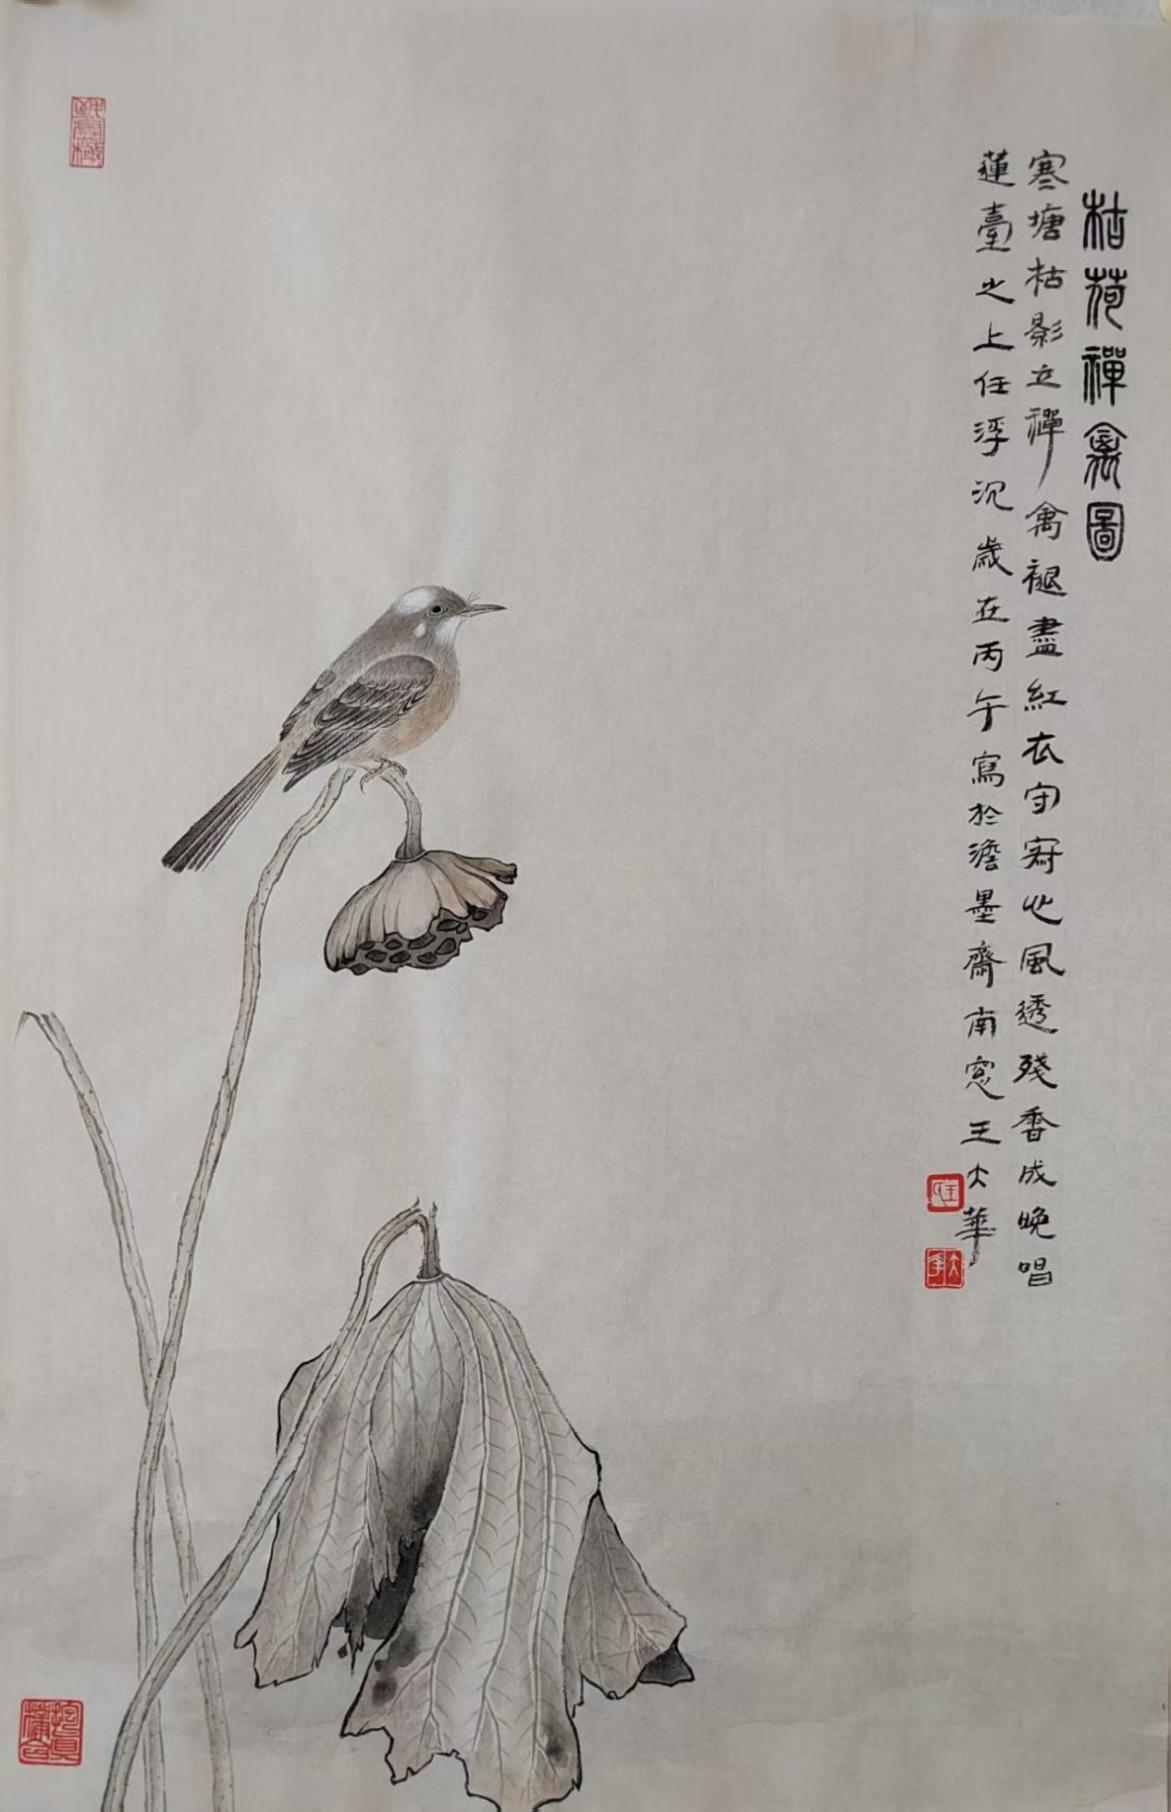 枯荷禪禽圖
寒塘枯影立禪禽褪盡紅衣守寂心風透殘香成晚唱
蓮臺之上任浮沉歲在丙午寫於澹墨齋南窓王大華
王
大華